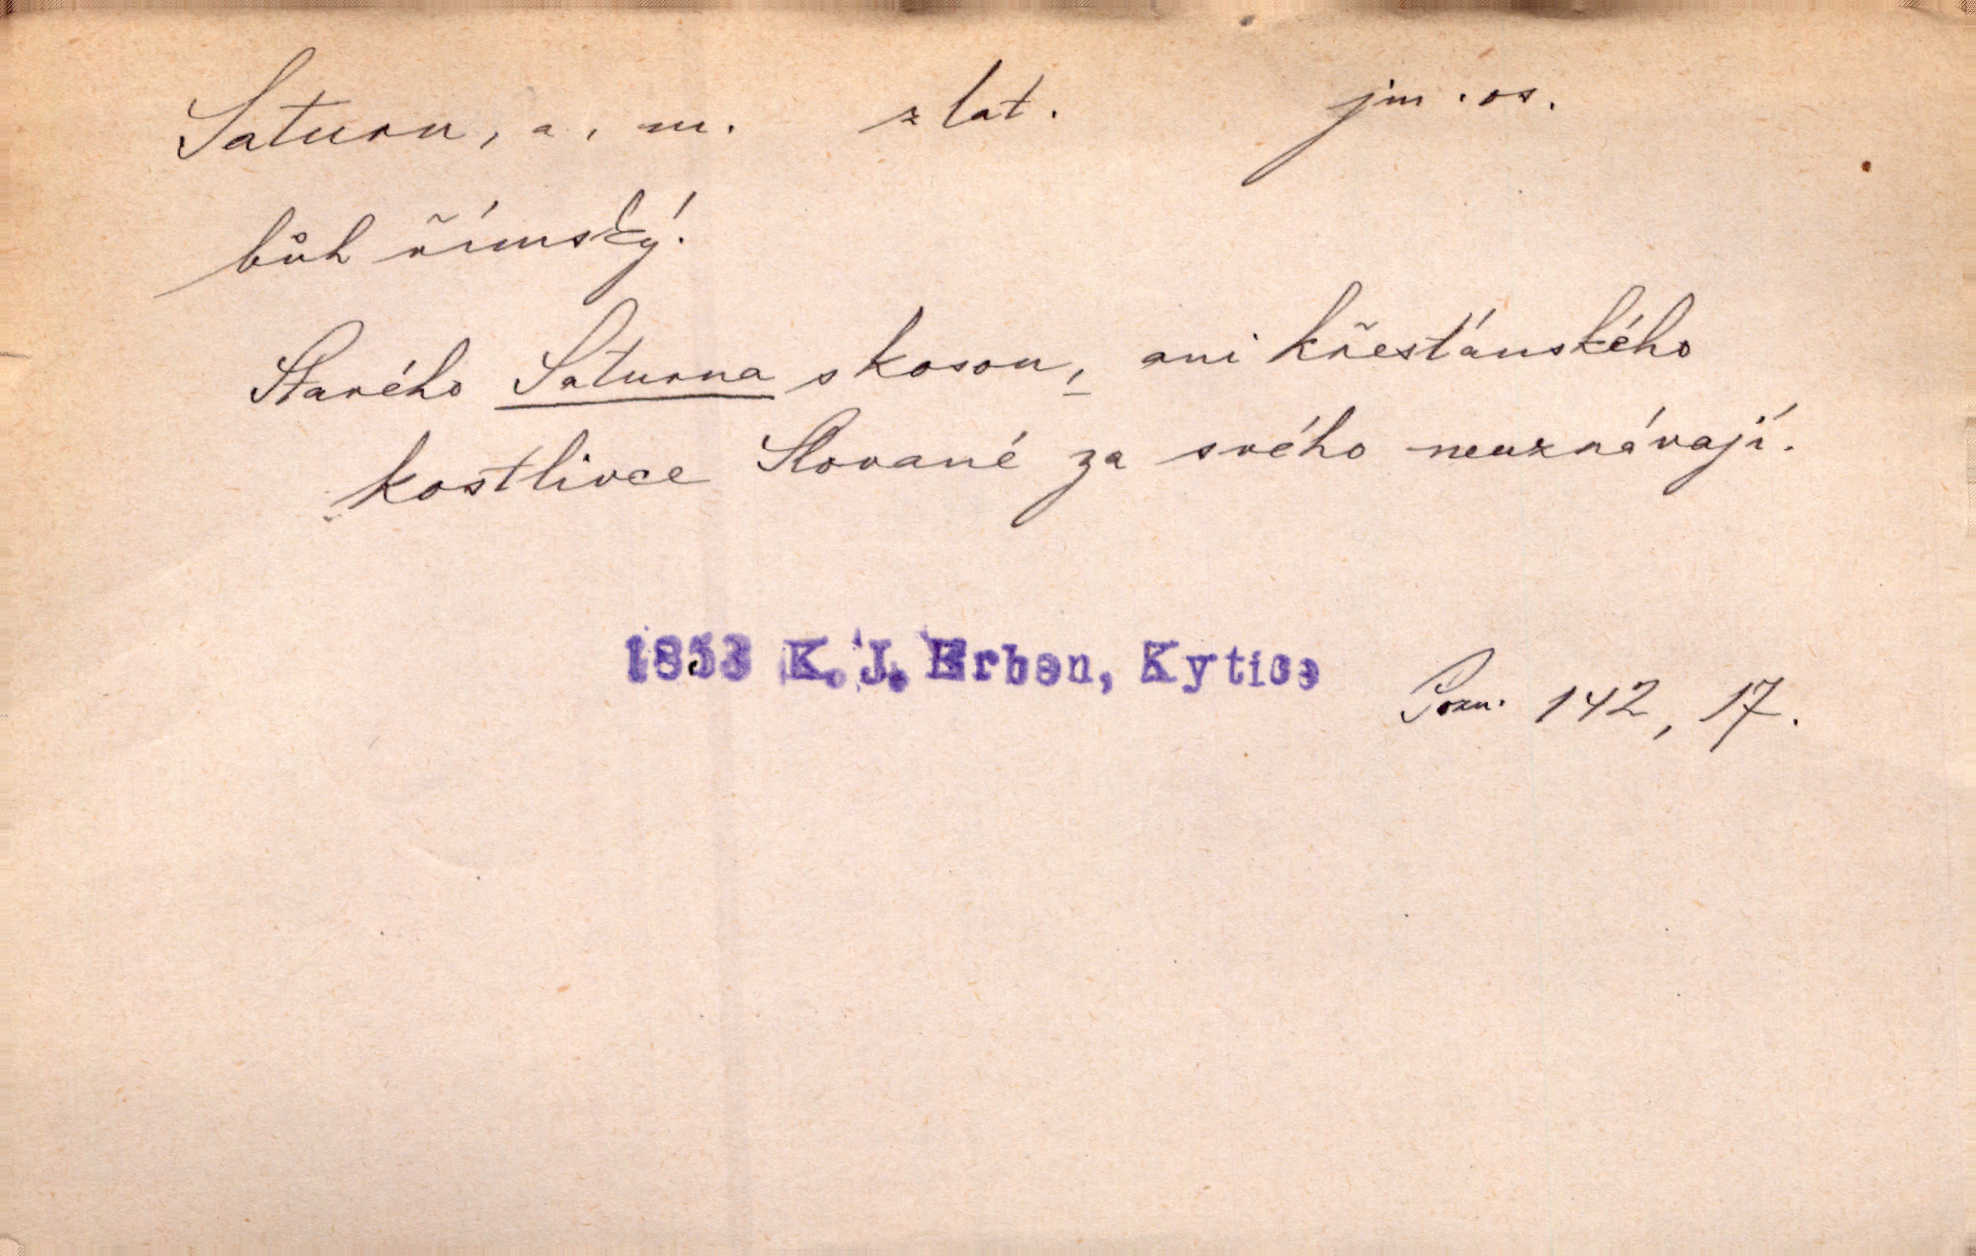 Saturn, a, m. z lat. jm. os.
bůh římský.
Starého Saturna s kosou, ani křesťánského
kostlivce Slované za svého neuznávají.
1853 K. J. Erben, Kytice
Pozn. 142, 17.